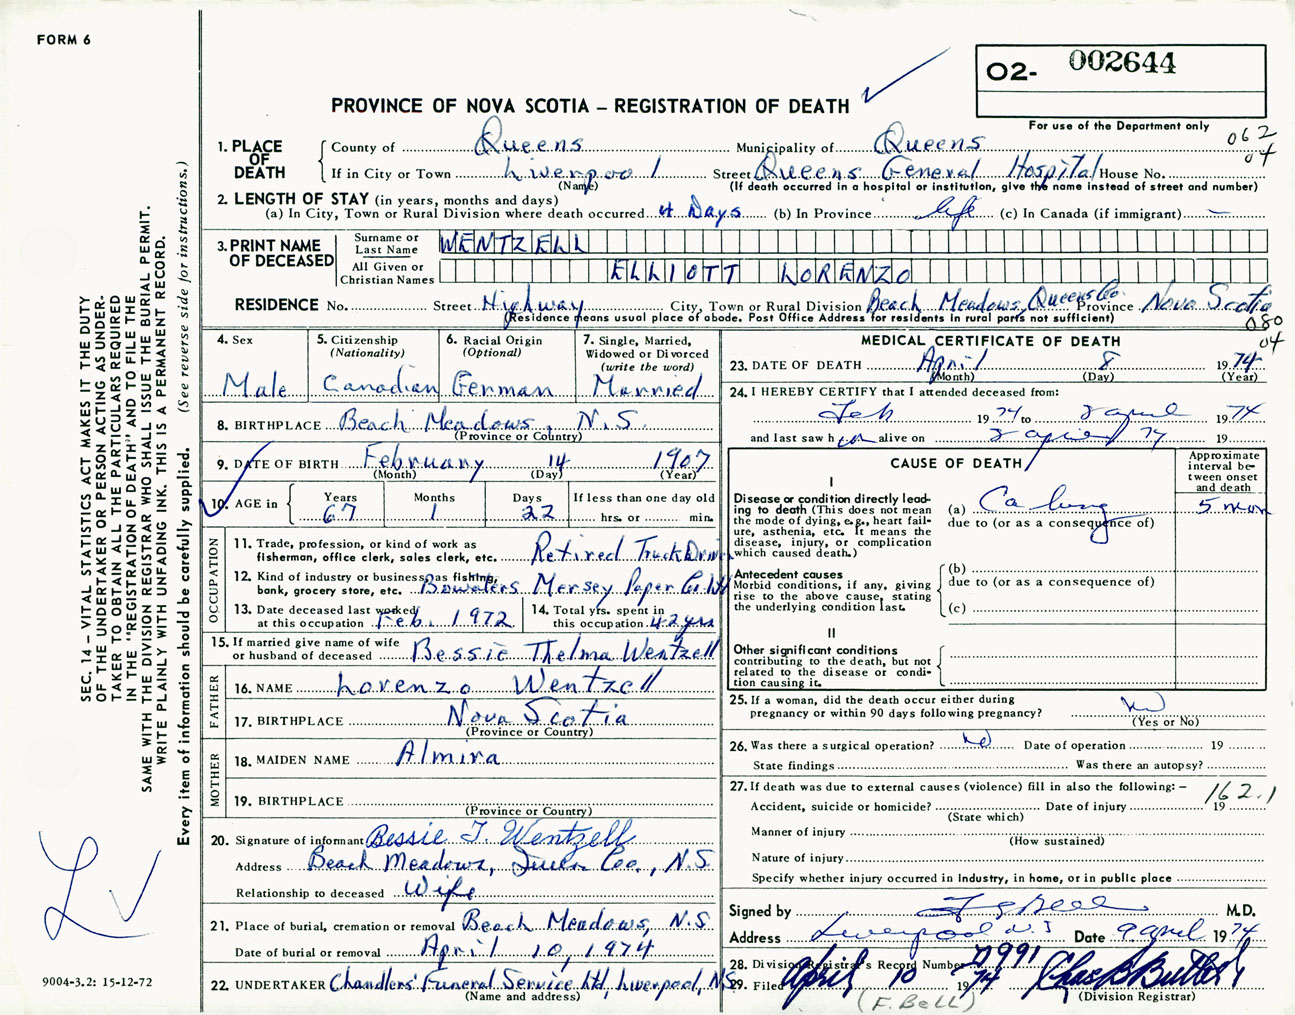 FORM 6
O2- 002644
PROVINCE OF NOVA SCOTIA – REGISTRATION OF DEATH
For use of the Department only
062
04
1. PLACE OF DEATH
County of Queens Municipality of Queens
If in City or Town Liverpool Street Queens General Hospital House No.
(Name) (If death occurred in a hospital or institution, give the name instead of street and number)
2. LENGTH OF STAY (in years, months and days)
(a) In City, Town or Rural Division where death occurred 4 Days (b) In Province life (c) In Canada (if immigrant) —
3. PRINT NAME OF DECEASED
Surname or Last Name WENTZELL
All Given or Christian Names ELLIOTT LORENZO
RESIDENCE No. Street Highway City, Town or Rural Division Beach Meadows, Queens Co. Province Nova Scotia
(Residence means usual place of abode. Post Office Address for residents in rural parts not sufficient)
080
04
4. Sex
Male
5. Citizenship
(Nationality)
Canadian
6. Racial Origin
(Optional)
German
7. Single, Married, Widowed or Divorced
(write the word)
Married
8. BIRTHPLACE Beach Meadows, N.S.
(Province or Country)
9. DATE OF BIRTH February 14 1907
(Month) (Day) (Year)
10. AGE in
Years Months Days If less than one day old
67 1 22 hrs. or min.
OCCUPATION
11. Trade, profession, or kind of work as
fisherman, office clerk, sales clerk, etc. Retired Truck Driver
12. Kind of industry or business as fishing,
bank, grocery store, etc. Bowaters Mersey Paper Co. Ltd
13. Date deceased last worked
at this occupation Feb. 1972
14. Total yrs. spent in
this occupation 42 yrs
15. If married give name of wife
or husband of deceased Bessie Thelma Wentzell
FATHER
16. NAME Lorenzo Wentzell
17. BIRTHPLACE Nova Scotia
(Province or Country)
MOTHER
18. MAIDEN NAME Almira
19. BIRTHPLACE
(Province or Country)
20. Signature of informant Bessie T. Wentzell
Address Beach Meadows, Queen Co., N.S.
Relationship to deceased Wife
21. Place of burial, cremation or removal Beach Meadows, N.S.
Date of burial or removal April 10, 1974
22. UNDERTAKER Chandlers' Funeral Service Ltd, Liverpool, NS
(Name and address)
MEDICAL CERTIFICATE OF DEATH
23. DATE OF DEATH April 8 1974
(Month) (Day) (Year)
24. I HEREBY CERTIFY that I attended deceased from:
Feb 1974 to 8 April 1974
and last saw h im alive on 8 April 74 19
CAUSE OF DEATH
Approximate interval between onset and death
I
Disease or condition directly leading to death (This does not mean the mode of dying, e.g., heart failure, asthenia, etc. It means the disease, injury, or complication which caused death.)
(a) Ca lung 5 mon
due to (or as a consequence of)
Antecedent causes
Morbid conditions, if any, giving rise to the above cause, stating the underlying condition last.
(b)
due to (or as a consequence of)
(c)
II
Other significant conditions
contributing to the death, but not related to the disease or condition causing it.
25. If a woman, did the death occur either during
pregnancy or within 90 days following pregnancy? No
(Yes or No)
26. Was there a surgical operation? No Date of operation 19
State findings Was there an autopsy?
27. If death was due to external causes (violence) fill in also the following: –
162.1
Accident, suicide or homicide? Date of injury 19
(State which)
Manner of injury
(How sustained)
Nature of injury
Specify whether injury occurred in industry, in home, or in public place
Signed by M.D.
Address Liverpool N.S Date 9 April 1974
28. Division Registrar's Record Number 2991
29. Filed April 10 1974 Chas B Butler
(Division Registrar)
(F. BELL)
SEC. 14 – VITAL STATISTICS ACT MAKES IT THE DUTY
OF THE UNDERTAKER OR PERSON ACTING AS UNDER-
TAKER TO OBTAIN ALL THE PARTICULARS REQUIRED
IN THE "REGISTRATION OF DEATH" AND TO FILE THE
SAME WITH THE DIVISION REGISTRAR WHO SHALL ISSUE THE BURIAL PERMIT.
WRITE PLAINLY WITH UNFADING INK. THIS IS A PERMANENT RECORD.
Every item of information should be carefully supplied. (See reverse side for instructions.)
9004-3.2: 15-12-72